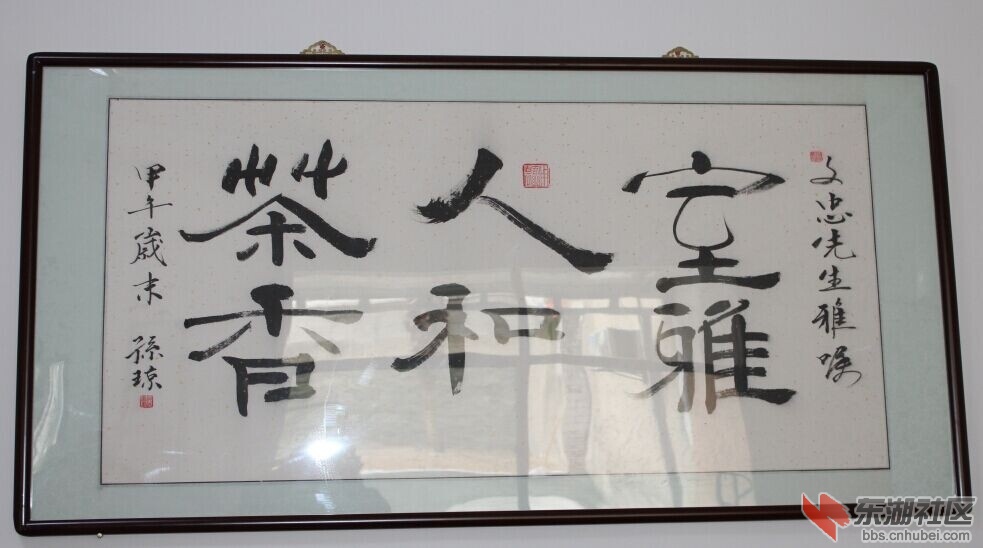 文忠先生雅嘱
室雅
人和
茶香
甲午歲末
孫琼
东湖社区
bbs.cnhubei.com